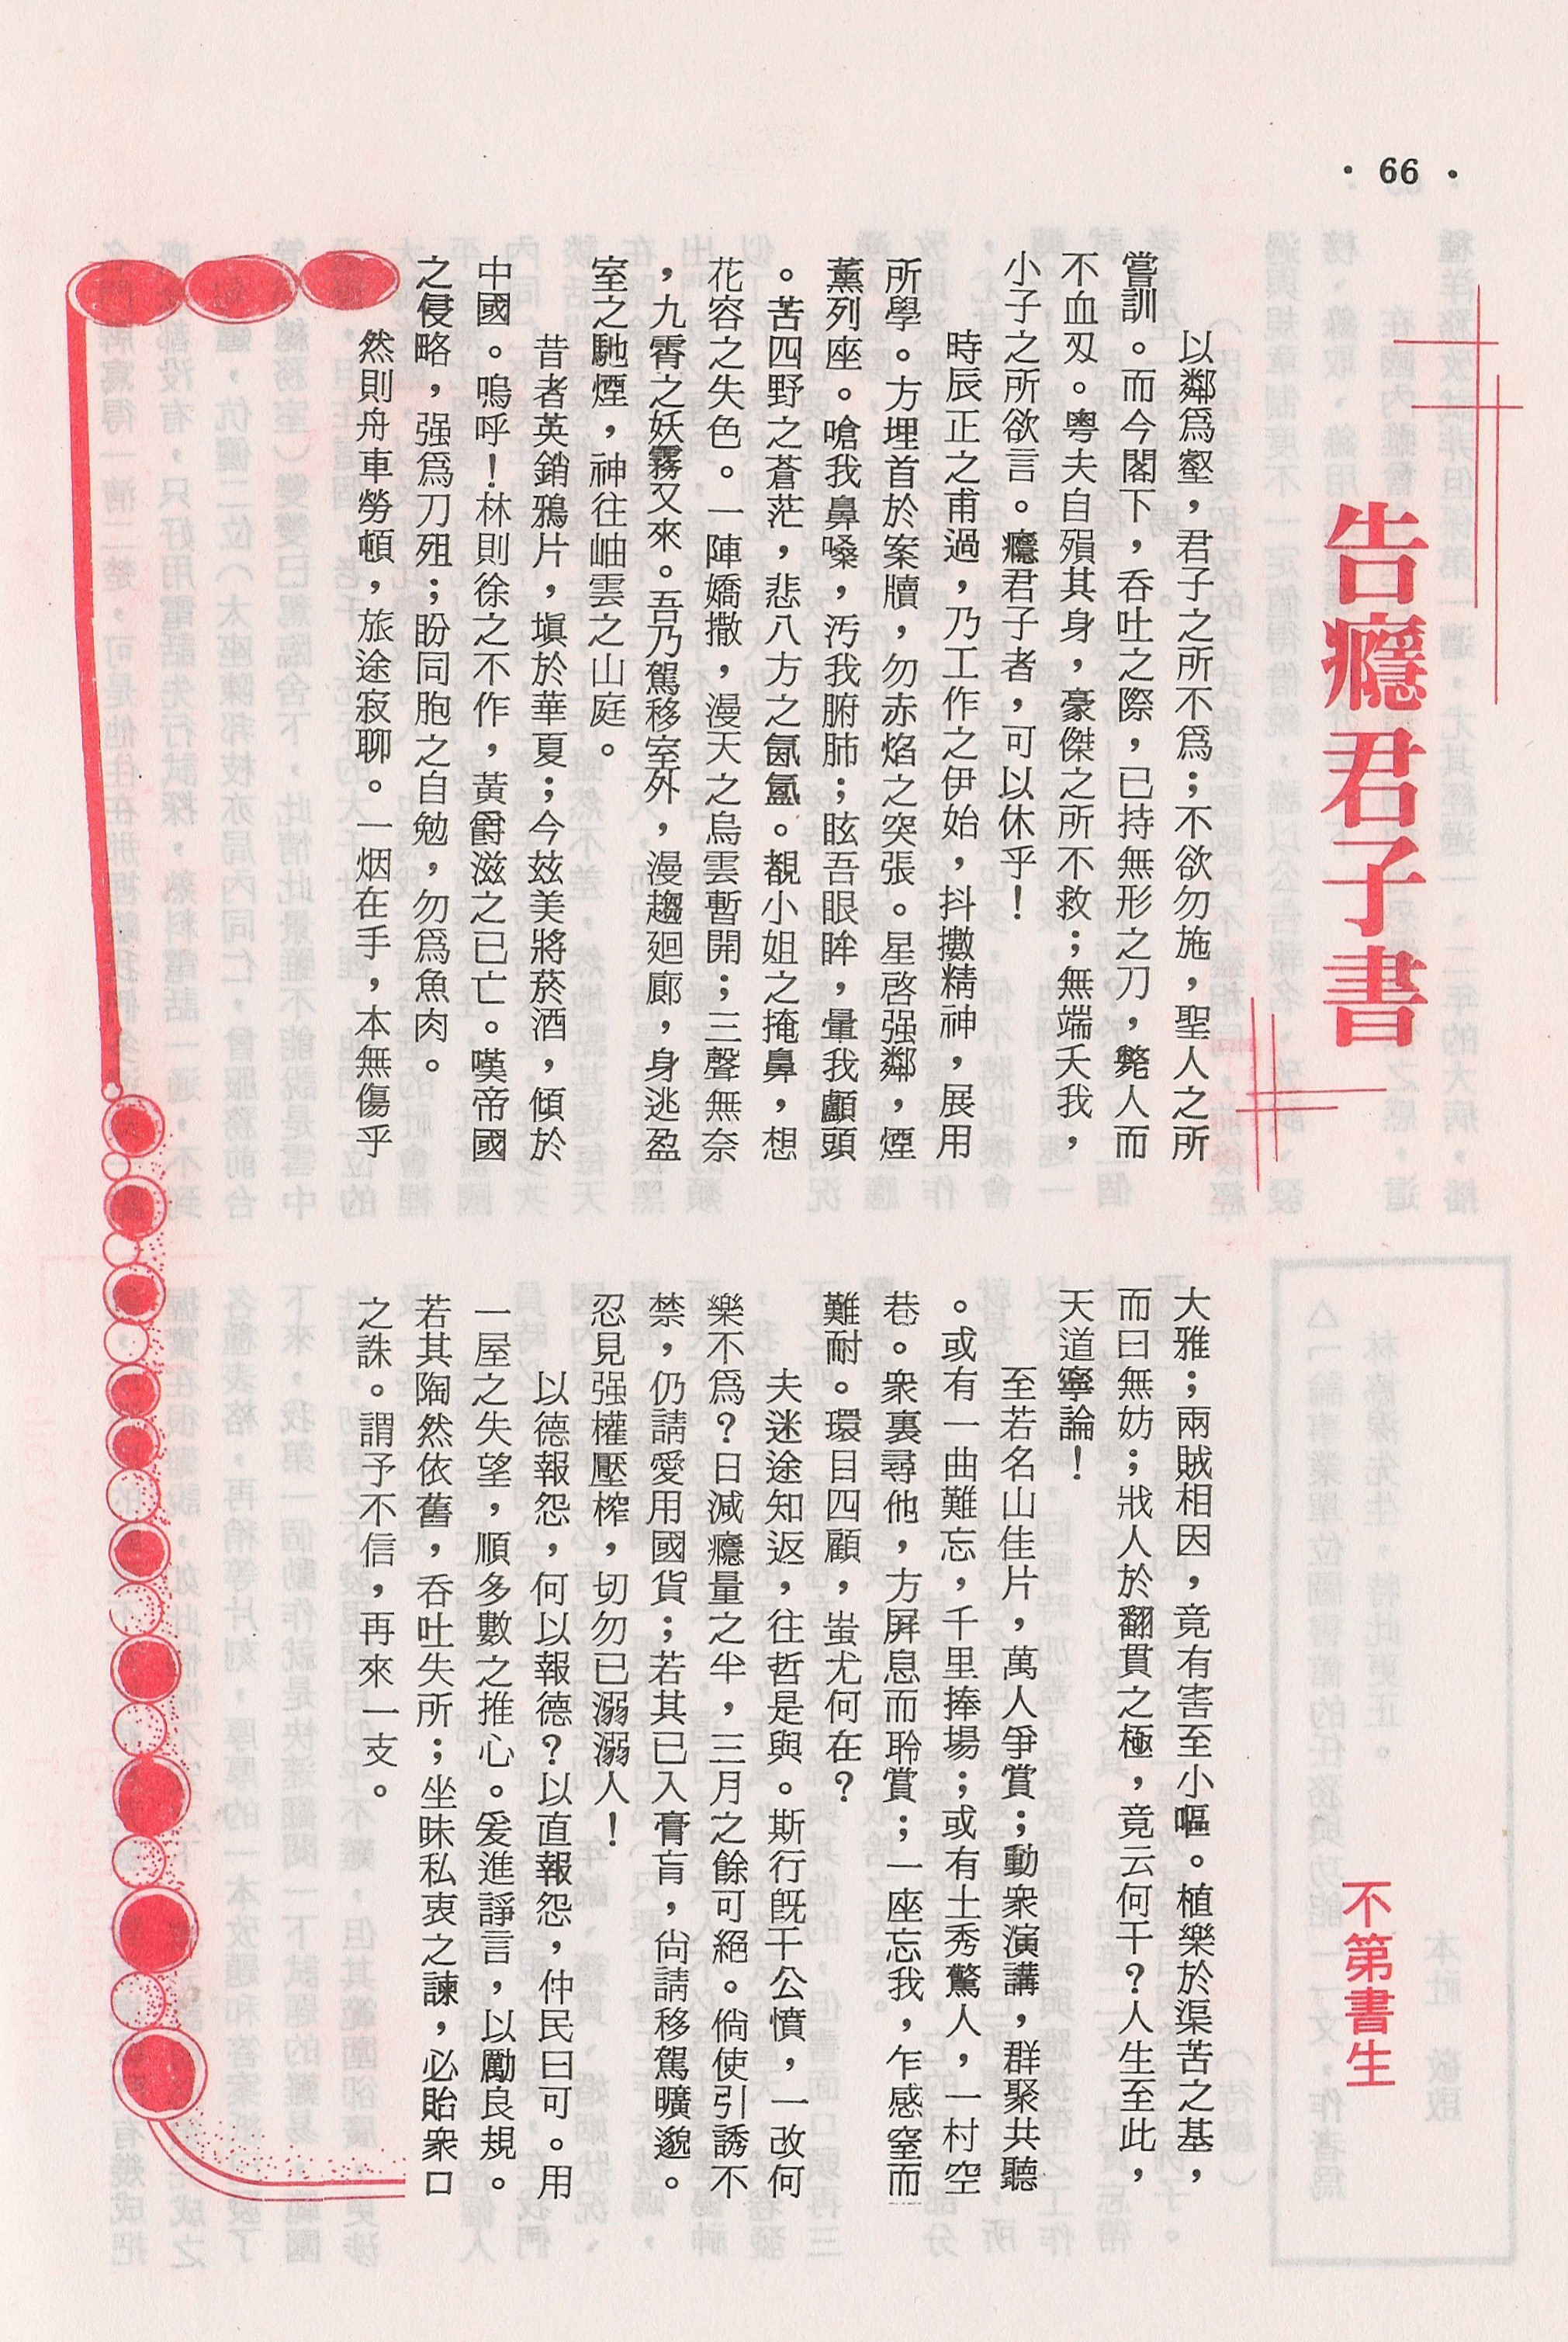 • 66 •
告癮君子書
不第書生
以鄰爲壑，君子之所不爲；不欲勿施，聖人之所
嘗訓。而今閣下，吞吐之際，已持無形之刀，斃人而
不血刃。粵夫自殞其身，豪傑之所不救；無端夭我，
小子之所欲言。癮君子者，可以休乎！
時辰正之甫過，乃工作之伊始，抖擻精神，展用
所學。方埋首於案牘，勿赤焰之突張。星啓强鄰，煙
薰列座。嗆我鼻嗓，汚我腑肺；眩吾眼眸，暈我顱頭
。苦四野之蒼茫，悲八方之氤氳。覩小姐之掩鼻，想
花容之失色。一陣嬌撒，漫天之烏雲暫開；三聲無奈
，九霄之妖霧又來。吾乃駕移室外，漫趨廻廊，身逃盈
室之馳煙，神往岫雲之山庭。
昔者英銷鴉片，塡於華夏；今茲美將菸酒，傾於
中國。嗚呼！林則徐之不作，黃爵滋之已亡。嘆帝國
之侵略，强爲刀殂；盼同胞之自勉，勿爲魚肉。
然則舟車勞頓，旅途寂聊。一烟在手，本無傷乎
大雅；兩賊相因，竟有害至小嘔。植樂於渠苦之基，
而曰無妨；戕人於翻貫之極，竟云何干？人生至此，
天道寧論！
至若名山佳片，萬人爭賞；動衆演講，群聚共聽
。或有一曲難忘，千里捧場；或有土秀驚人，一村空
巷。衆裏尋他，方屛息而聆賞；一座忘我，乍感窒而
難耐。環目四顧，蚩尤何在？
夫迷途知返，往哲是與。斯行旣干公憤，一改何
樂不爲？日減癮量之半，三月之餘可絕。倘使引誘不
禁，仍請愛用國貨；若其已入膏肓，尙請移駕曠邈。
忍見强權壓榨，切勿已溺溺人！
以德報怨，何以報德？以直報怨，仲民曰可。用
一屋之失望，順多數之推心。爰進諍言，以勵良規。
若其陶然依舊，吞吐失所；坐昧私衷之諫，必貽衆口
之誅。謂予不信，再來一支。